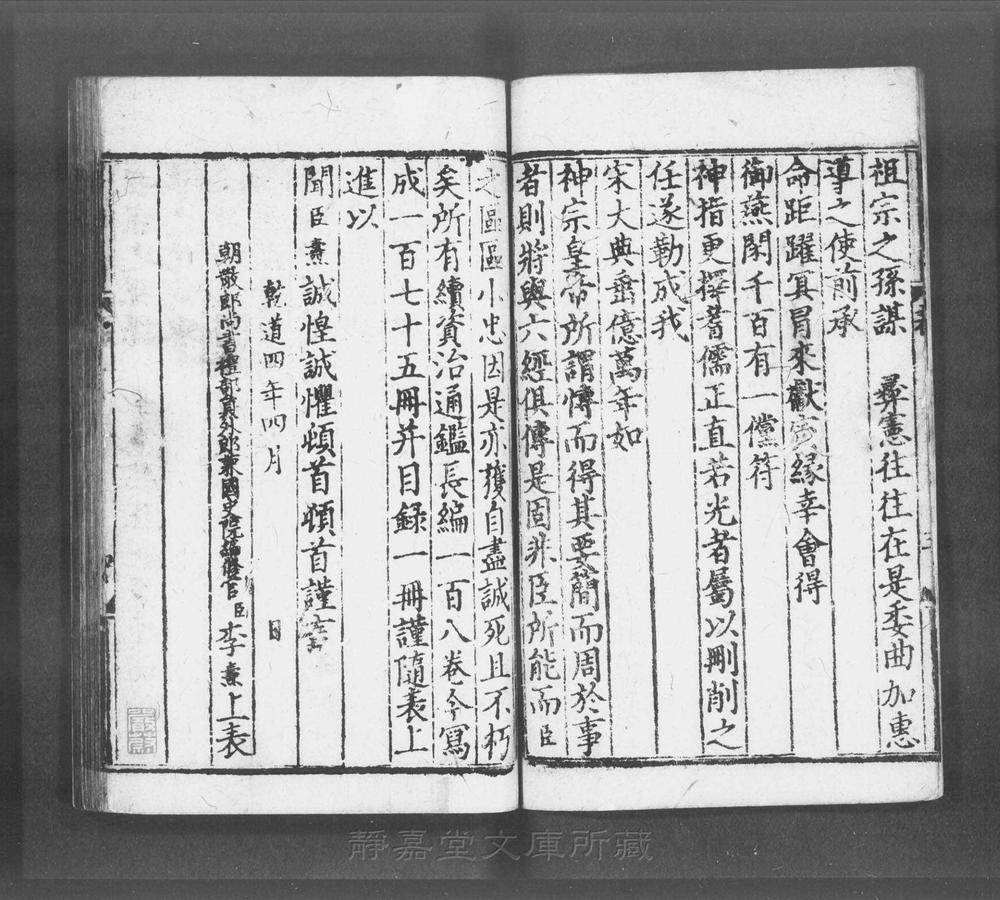 祖宗之孫謀　彞憲往往在是委曲加惠
導之使前承
命距躍冥冒來獻寅緣幸會得
御燕閑千百有一儻符
神指更擇耆儒正直若光者屬以刪削之
任遂勒成我
宋大典垂億萬年如
神宗皇帝所謂愽而得其要簡而周於事
者則將與六經俱傳是固非臣所能而臣
之區區小忠因是亦獲自盡誠死且不朽
矣所有續資治通鑑長編一百八卷今寫
成一百七十五冊并目錄一冊謹隨表上
進以
聞臣燾誠惶誠懼頓首頓首謹言
乾道四年四月　日
朝散郎尚書禮部員外郎兼國史院編修官臣李燾上表
靜嘉堂文庫所藏